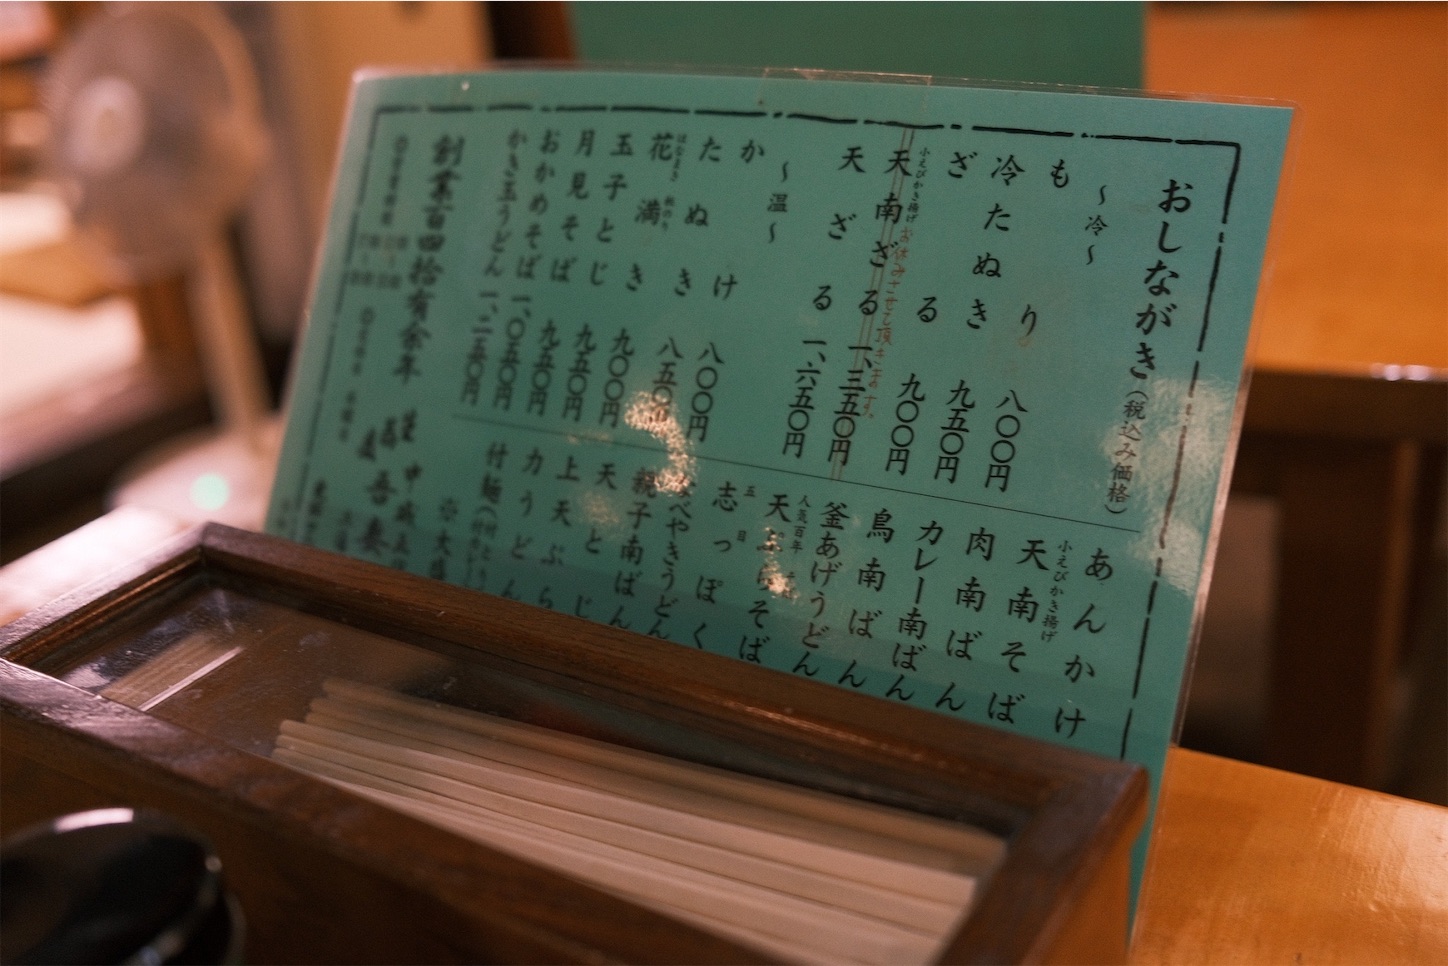 おしながき（税込み価格）
～冷～
もり 八〇〇円
冷たぬき 九五〇円
ざる 九〇〇円
小えびかき揚げ
天南ざる 一、三五〇円
お休みさせて頂きます。
天ざる 一、六五〇円
～温～
かけ 八〇〇円
たぬき 八五〇円
はなまき
花満き 九〇〇円
玉子とじ 九五〇円
月見そば 九五〇円
おかめそば 一、〇五〇円
かき玉うどん 一、二五〇円
あんかけ
小えびかき揚げ
天南そば
肉南ばん
カレー南ばん
鳥南ばん
釜あげうどん
人気百年
天ぷらそば
五目
志っぽく
なべやきうどん
親子南ばん
天とじ
上天ぷら
力うどん
付麺
※大盛
創業百四拾有余年